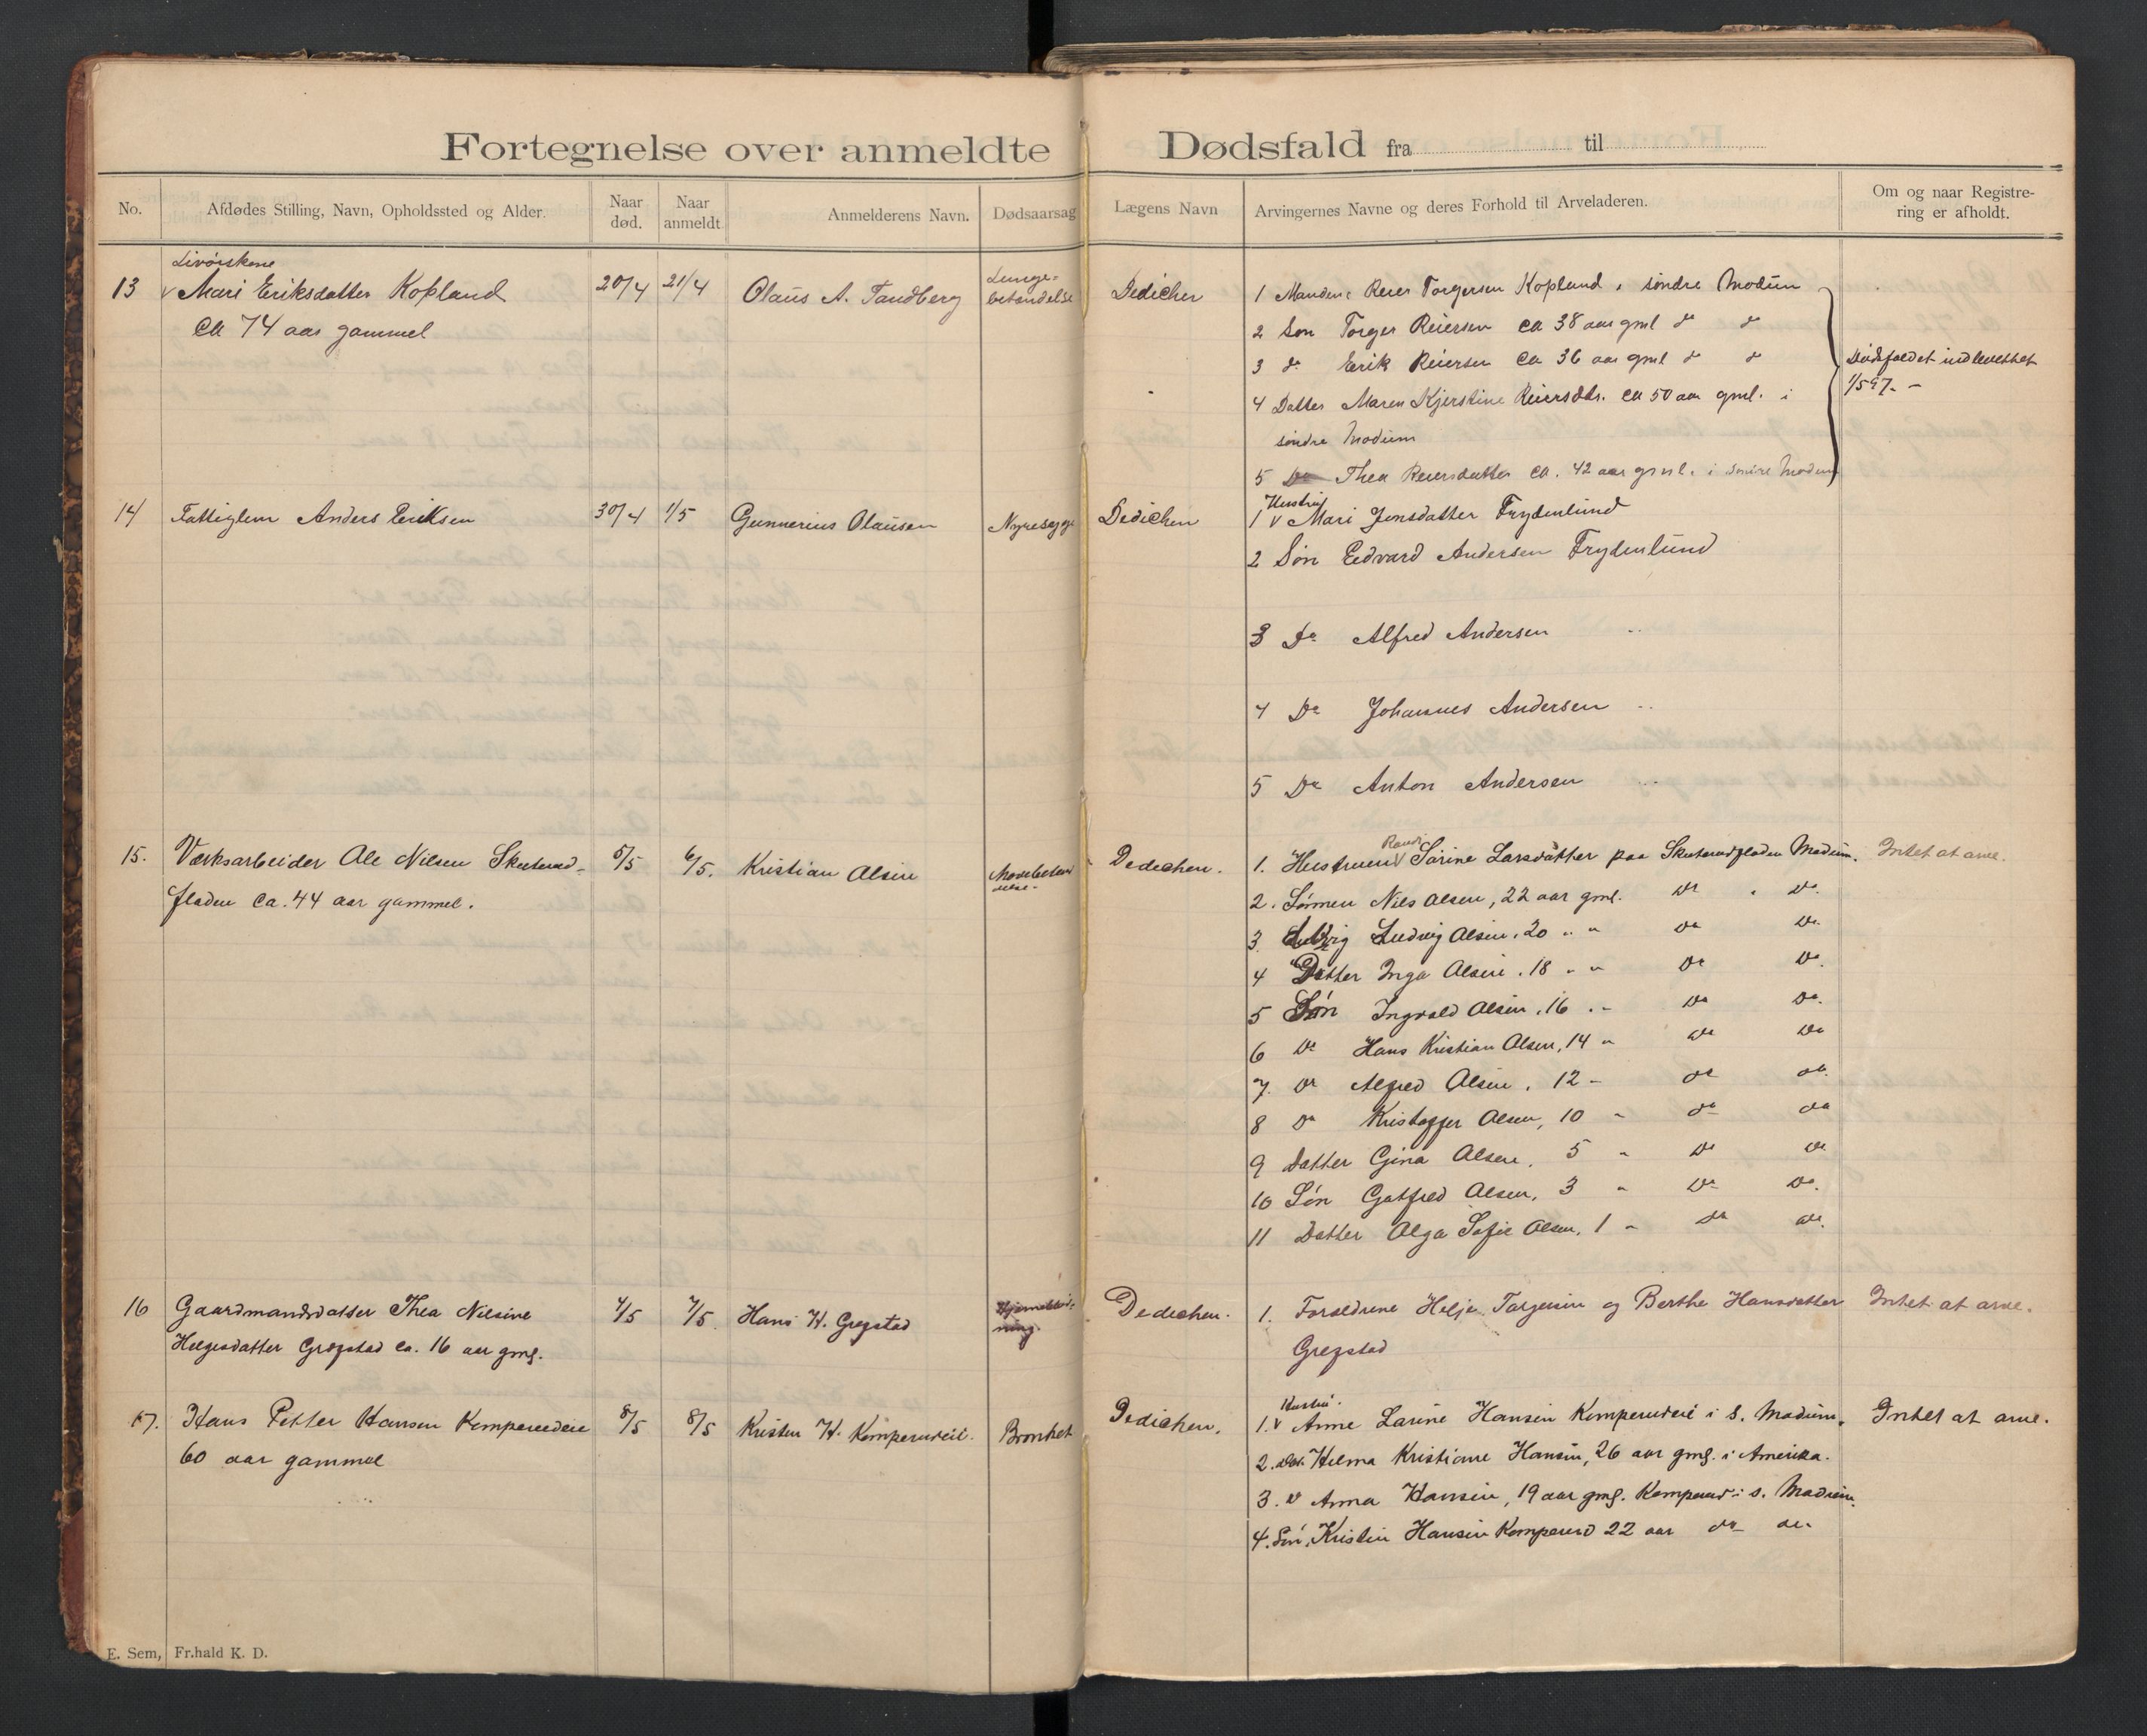 Fortegnelse over anmeldte Dødsfald fra til
No.
Afdødes Stilling, Navn, Opholdssted og Alder.
Naar død.
Naar anmeldt
Anmelderens Navn.
Dødsaarsag
Lægens Navn
Arvingernes Navne og deres Forhold til Arveladeren.
Om og naar Registre-
ring er afholdt.
13
Mari Eriksdatter Kopland
Ca 74 aar gammel
20/4
21/4
Olaus A. Tandberg
Lunge-
betændelse
Dedichen
1 Manden Reier Torgersen Kopland, søndre Modum
2 Søn Torger Reiersen ca 38 aar gml do do
3 do Erik Reiersen ca 36 aar gml do do
4 Datter Maren Kjerstine Reiersdtr. ca 50 aar gml. i
søndre Modum
5 Do Thea Reiersdatter ca. 42 aar gml. i søndre Modum
Dødsfaldet indberettet
1/5 97. -
14
Fattiglem Anders Eriksen
30/4
1/5
Gunnerius Olausen
Nyresyge
Dedichen
Hustru
1 v Mari Jensdatter Frydenlund
2 Søn Edvard Andersen Frydenlund
3 Do Alfred Andersen
4 Do Johannes Andersen
5 Do Anton Andersen
15.
Værksarbeider Ole Nilsen Skuterud-
fladen ca. 44 aar gammel.
5/5
6/5.
Kristian Olsen
Dedichen.
Randi
1. Hustruen v Sørine Larsdatter paa Skuterudfladen Modum.
2. Sønnen Nils Olsen, 22 aar gml. Do Do.
3. Ludvig Olsen, 20 " " Do Do.
4 Datter Inga Olsen, 18 " " Do Do.
5 Søn Ingvald Olsen, 16 " Do Do.
6 Do Hans Kristian Olsen, 14 " Do Do
7. Do Alfred Olsen, 12 - do do.
8 Do Kristoffer Olsen, 10 " do do
9 Datter Gina Olsen, 5 " Do Do
10 Søn Gotfred Olsen, 3 " Do Do.
11 Datter Olga Sofie Olsen, 1 " do do.
Intet at arve.
16
Gaardmandsdatter Thea Nilsine
Helgesdatter Gregstad ca. 16 aar gml.
4/5
7/5
Hans H. Gregstad
Dedichen.
1. Forældrene Helje Torgersen og Berthe Hansdatter
Gregstad
Intet at arve.
17.
Hans Petter Hansen Komperudeie
60 aar gammel
8/5
8/5
Kristen H. Komperudeie.
Bronket
Dedichen.
Hustru.
1. v Anne Larine Hansen Komperudeie i S. Modum.
2. Dtr. Hilma Kristiane Hansen, 26 aar gml. i Amerika.
3. Do Anna Hansen, 19 aar gml. Komperud i S. Modum.
4. Søn, Kristen Hansen Komperud 22 aar do do
Intet at arve.
E. Sem, Fr.hald K. D.